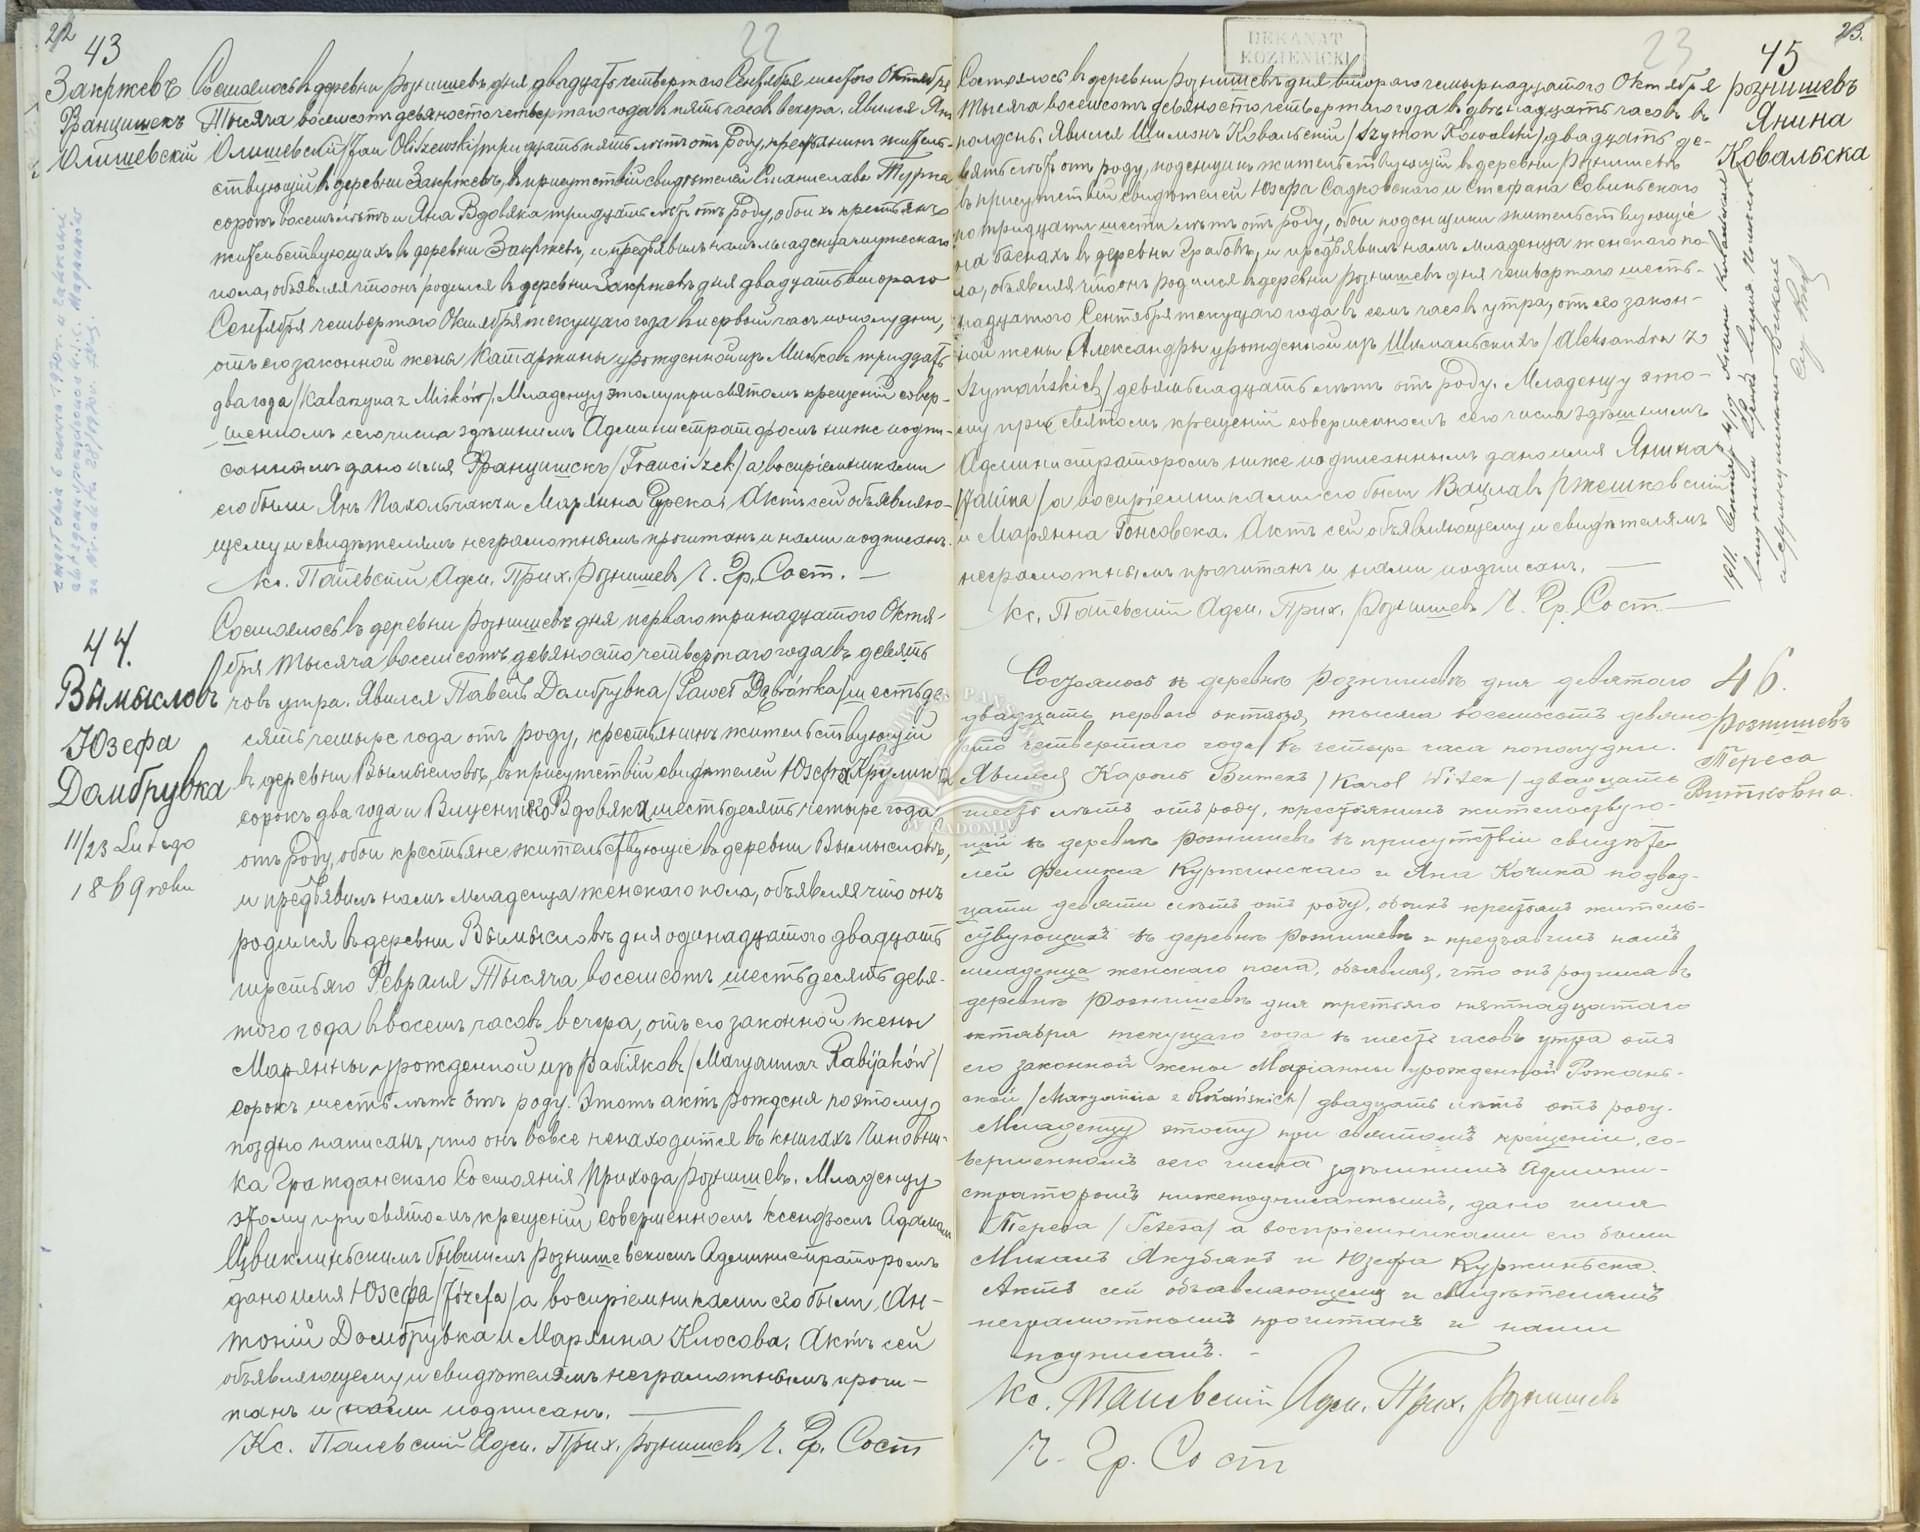 22
22
43
Закржевъ
Францишекъ
Олишевскій
Состоялось въ деревни Рознишевъ дня двадцать четвертаго Сентября шестого Октября
Тысяча восемсотъ девяносто четвертаго года въ пять часовъ вечера. Явился Янъ
Олишевскій /Jan Oliszewski/ тридцать пять лѣтъ отъ роду, крестьянинъ житель-
ствующій въ деревни Закржевъ, въ присутствій свидѣтелей Станислава Турка
сорокъ восемь лѣтъ и Яна Вдовяка тридцать лѣтъ отъ роду, обоихъ крестьянъ
жительствующихъ въ деревни Закржевъ, и предъявилъ намъ младенца мужескаго
пола, объявляя что онъ родился въ деревни Закржевъ дня двадцать втораго
Сентября четвертаго Октября текущаго года въ первый часъ пополудни,
отъ его законной жены Катаржины урожденной изъ Миськовъ тридцать
два года /Katarzyna z Miśków/. Младенцу этому при святомъ крещеній совер-
шенномъ сего числа здѣшнимъ Администраторомъ ниже подпи-
саннымъ дано имя Францишекъ /Franciszek/ а воспріемниками
его были Янъ Пахольчакъ и Марянна Гурска. Актъ сей объявляю-
щему и свидѣтелямъ неграмотнымъ прочитанъ и нами подписанъ.
Кс. Палевскій Адм. Прих. Рознишевъ Ч. Гр. Сост. —
44.
Вымысловъ
Юзефа
Домбрувка
11/23 Lutego
1869 roku
Состоялось въ деревни Рознишевъ дня перваго тринадцатого Октя-
бря Тысяча восемсотъ девяносто четвертаго года въ девять
часовъ утра. Явился Павелъ Домбрувка /Paweł Dąbrówka/ шестьде-
сять четыре года отъ роду, крестьянинъ жительствующій
въ деревни Вымысловъ, въ присутствій свидѣтелей Юзефа Крулика
сорокъ два года и Винценту Вдовяка шестьдесятъ четыре года
отъ роду, обои крестьяне жительствующіе въ деревни Вымысловъ,
и предъявилъ намъ младенца женскаго пола, объявляя что онъ
родился въ деревни Вымысловъ дня одинадцатого двадцать
третьяго Февраля Тысяча восемсотъ шестьдесятъ девя-
того года въ восемь часовъ вечера, отъ его законной жены
Марянны урожденной изъ Рабіяковъ /Maryanna z Rabijaków/
сорокъ шесть лѣтъ отъ роду. Этотъ актъ рожденя поэтому
поздно написанъ, что онъ вовсе ненаходится въ книгахъ Чиновни-
ка Гражданскаго Состоянія Прихода Рознишевъ. Младенцу
этому при святомъ крещеній совершенномъ ксендзомъ Адамомъ
Цвиклиньскимъ бывшимъ Рознишевскимъ Администраторомъ
дано имя Юзефа /Józefa/ а воспріемниками его были Ан-
тоній Домбрувка и Марянна Клосова. Актъ сей
объявляющему и свидѣтелямъ неграмотнымъ прочи-
танъ и нами подписанъ. —
Кс. Палевскій Адм. Прих. Рознишевъ Ч. Гр. Сост
DEKANAT
KOZIENICKI
23
23.
45
Рознишевъ
Янина
Ковальска
Состоялось въ деревни Рознишевъ дня втораго четырнадцатого Октября
Тысяча восемсотъ девяносто четвертаго года въ двѣнадцать часовъ въ
полдень. Явился Шимонъ Ковальскій /Szymon Kowalski/ двадцать де-
вять лѣтъ отъ роду, поденщикъ жительствующій въ деревни Рознишевъ
въ присутствій свидѣтелей Юзефа Садковского и Стефана Савиньского
по тридцати шести лѣтъ отъ роду, обои поденщики жительствующіе
на Баснахъ въ деревни Грабовъ, и предъявилъ намъ младенца женскаго по-
ла, объявляя что онъ родился въ деревни Рознишевъ дня четвертаго шест-
надцатого Сентября текущаго года въ семь часовъ утра, отъ его закон-
ной жены Александры урожденной изъ Шиманьскихъ /Aleksandra z
Szymańskich/ девятьнадцать лѣтъ отъ роду. Младенцу это-
му при святомъ крещеній совершенномъ сего числа здѣшнимъ
Администраторомъ ниже подписаннымъ дано имя Янина
/Janina/ а воспріемниками его были Вацлавъ Ржешковскій
и Марянна Гонсовска. Актъ сей объявляющему и свидѣтелямъ
неграмотнымъ прочитанъ и нами подписанъ. —
Кс. Палевскій Адм. Прих. Рознишевъ Ч. Гр. Сост. —
46.
Рознишевъ
Тереса
Витковна.
Состоялось въ деревнѣ Рознишевъ дня девятаго
двадцать перваго октября тысяча восемьсотъ девяно-
сто четвертаго года въ четыре часа пополудни.
Явился Кароль Витекъ /Karol Witek/ двадцать
шесть лѣтъ отъ роду, крестьянинъ жительствую-
щій въ деревнѣ Рознишевъ въ присутствіи свидѣте-
лей Феликса Куржиньскаго и Яна Кочика по двад-
цати девяти лѣтъ отъ роду, обоихъ крестьянъ житель-
ствующихъ въ деревнѣ Рознишевъ и предъявилъ намъ
младенца женскаго пола, объявляя, что онъ родился въ
деревнѣ Рознишевъ дня третьяго пятнадцатаго
октября текущаго года въ шесть часовъ утра отъ
его законной жены Маріанны урожденной Рожань-
ской /Maryanna z Rożańskich/ двадцать лѣтъ отъ роду.
Младенцу этому при святомъ крещеніи, со-
вершенномъ сего числа здѣшнимъ Админи-
страторомъ нижеподписаннымъ, дано имя
Тереса /Teresa/ а воспріемниками его были
Михалъ Якубякъ и Юзефа Куржиньска.
Актъ сей объявляющему и свидѣтелямъ
неграмотнымъ прочитанъ и нами
подписанъ. —
Кс. Палевскій Адм. Прих. Рознишевъ
Ч. Гр. Сост